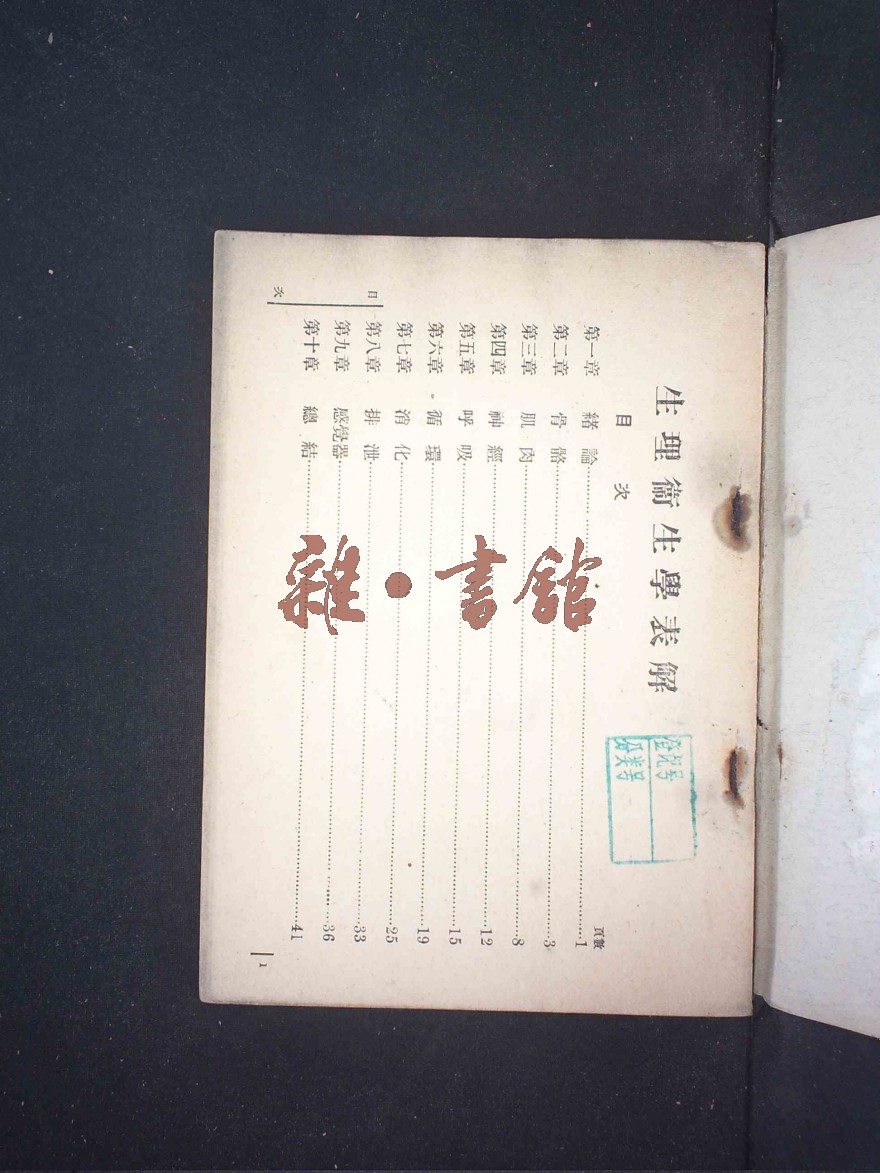 生理衞生學表解
目次
頁數
第一章 緒論……1
第二章 骨骼……3
第三章 肌肉……8
第四章 神經……12
第五章 呼吸……15
第六章 循環……19
第七章 消化……25
第八章 排泄……33
第九章 感覺器……36
第十章 總結……41
目次
1
登記号
分类号
雜·書館